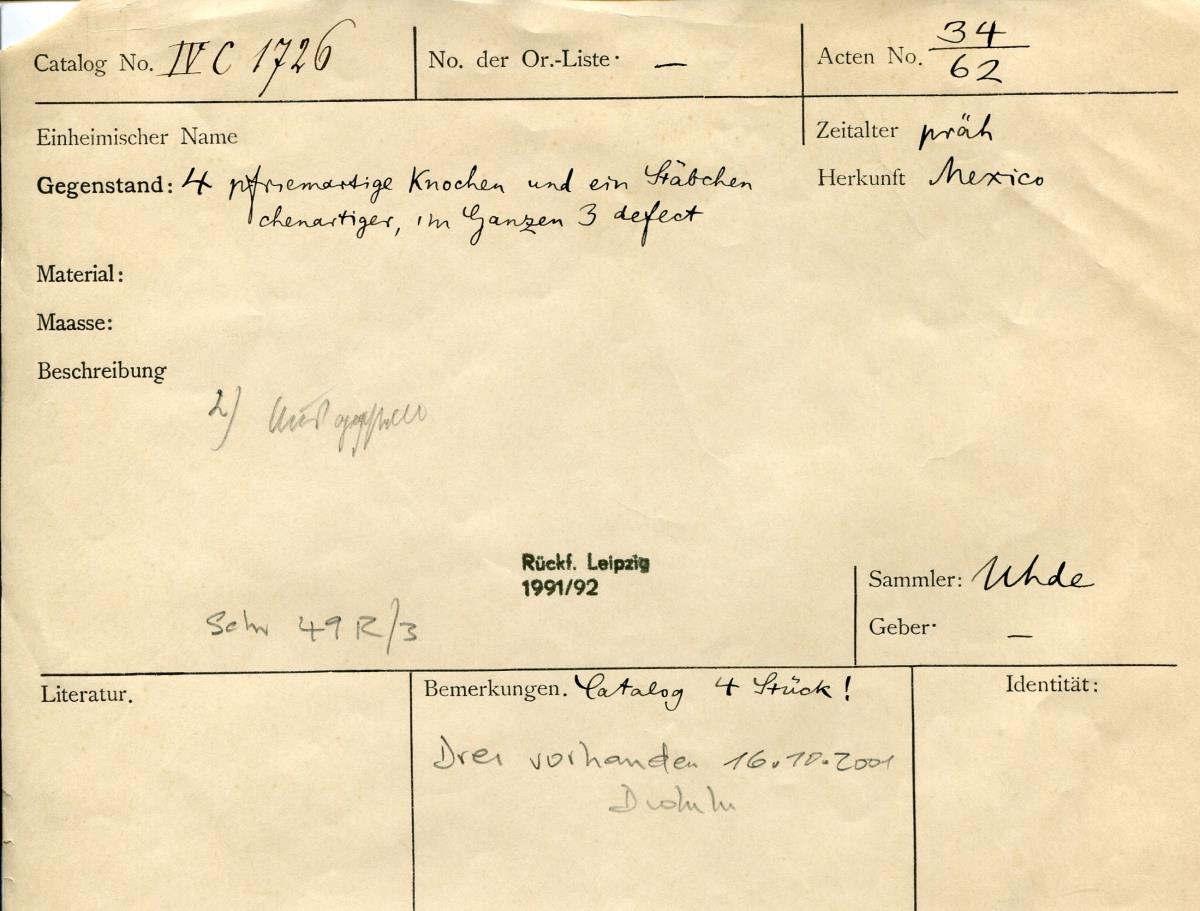 Catalog No. IV C 1726
No. der Or.-Liste. —
Acten No. 34/62
Einheimischer Name
Zeitalter präh
Gegenstand: 4 pfriemartige Knochen und ein Stäbchen
chenartiger, im Ganzen 3 defect
Herkunft Mexico
Material:
Maasse:
Beschreibung
2)
Rückf. Leipzig
1991/92
Sammler: Uhde
Schr 49 R/3
Geber. —
Literatur.
Bemerkungen. Catalog 4 Stück!
Identität:
Drei vorhanden 16.10.2001